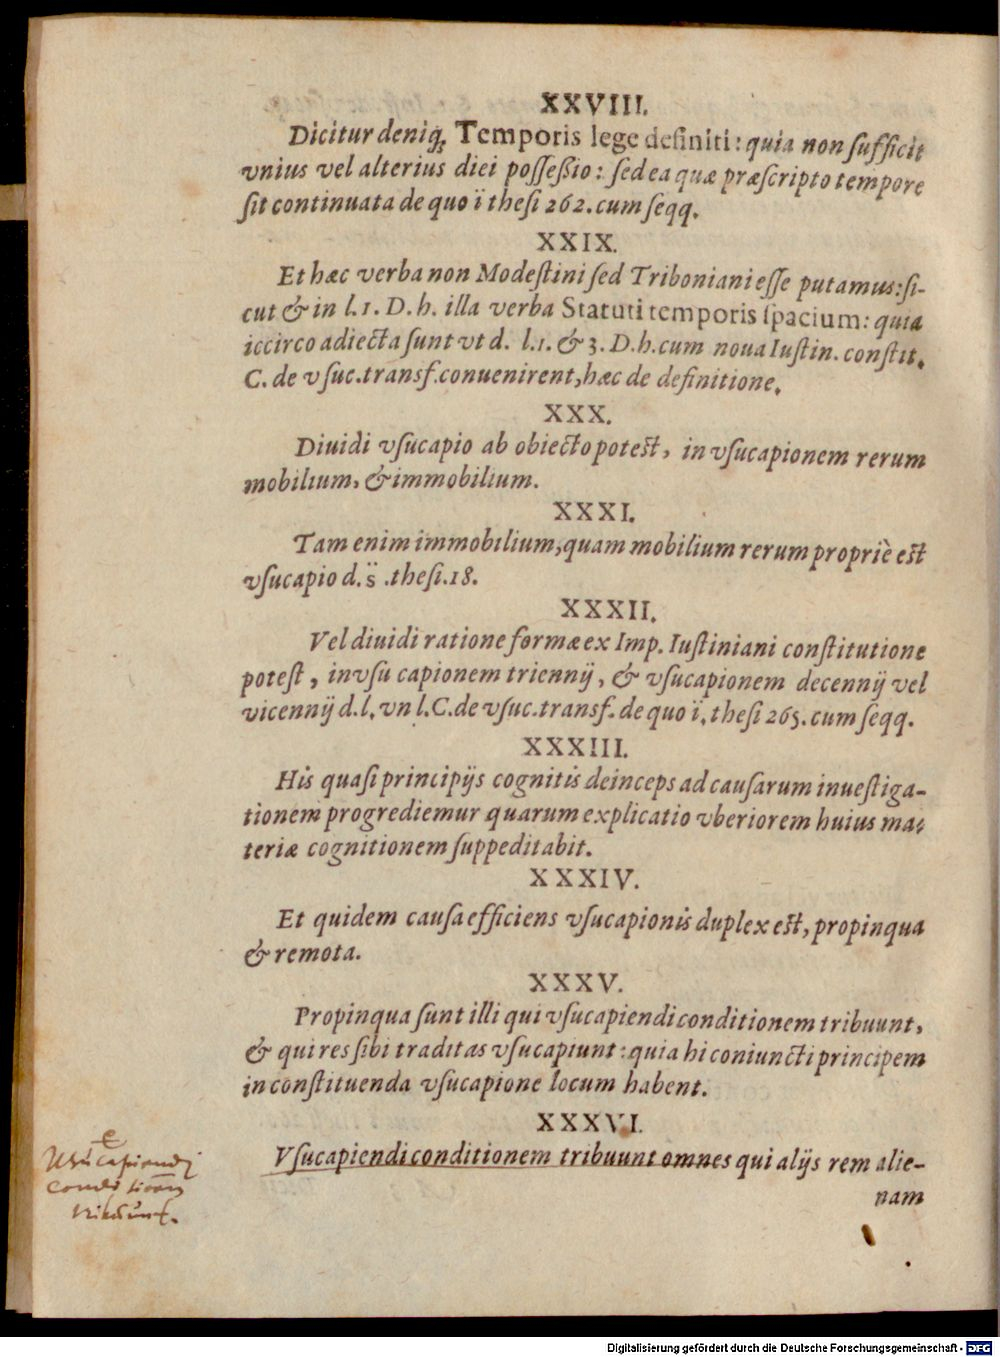 XXVIII.
Dicitur deniq; Temporis lege definiti: quia non ſufficit
vnius vel alterius diei poſſeßio: ſed ea quæ præſcripto tempore
ſit continuata de quo ï theſi 262. cum ſeqq.
XXIX.
Et hæc verba non Modeſtini ſed Triboniani eſſe putamus: ſi-
cut & in l. 1. D. h. illa verba Statuti temporis ſpacium: quia
iccirco adiecta ſunt vt d. l. 1. & 3. D. h. cum noua Iuſtin. conſtit.
C. de vſuc. transf. conuenirent, hæc de definitione.
XXX.
Diuidi vſucapio ab obiecto poteſt, in vſucapionem rerum
mobilium, & immobilium.
XXXI.
Tam enim immobilium, quam mobilium rerum propriè eſt
vſucapio d. s̈ . theſi. 18.
XXXII.
Vel diuidi ratione formæ ex Imp. Iuſtiniani conſtitutione
poteſt, in vſu capionem triennij, & vſucapionem decennij vel
vicennij d. l. vn l. C. de vſuc. transf. de quo ï. theſi 265. cum ſeqq.
XXXIII.
His quaſi principijs cognitis deinceps ad cauſarum inueſtiga-
tionem progrediemur quarum explicatio vberiorem huius ma-
teriæ cognitionem ſuppeditabit.
XXXIV.
Et quidem cauſa efficiens vſucapionis duplex eſt, propinqua
& remota.
XXXV.
Propinqua ſunt illi qui vſucapiendi conditionem tribuunt,
& qui res ſibi traditas vſucapiunt: quia hi coniuncti principem
in conſtituenda vſucapione locum habent.
XXXVI.
Vſucapiendi conditionem tribuunt omnes qui alijs rem alie-
nam
Usucapiendi
conditionem
tribuunt.
Digitalisierung gefördert durch die Deutsche Forschungsgemeinschaft - DFG